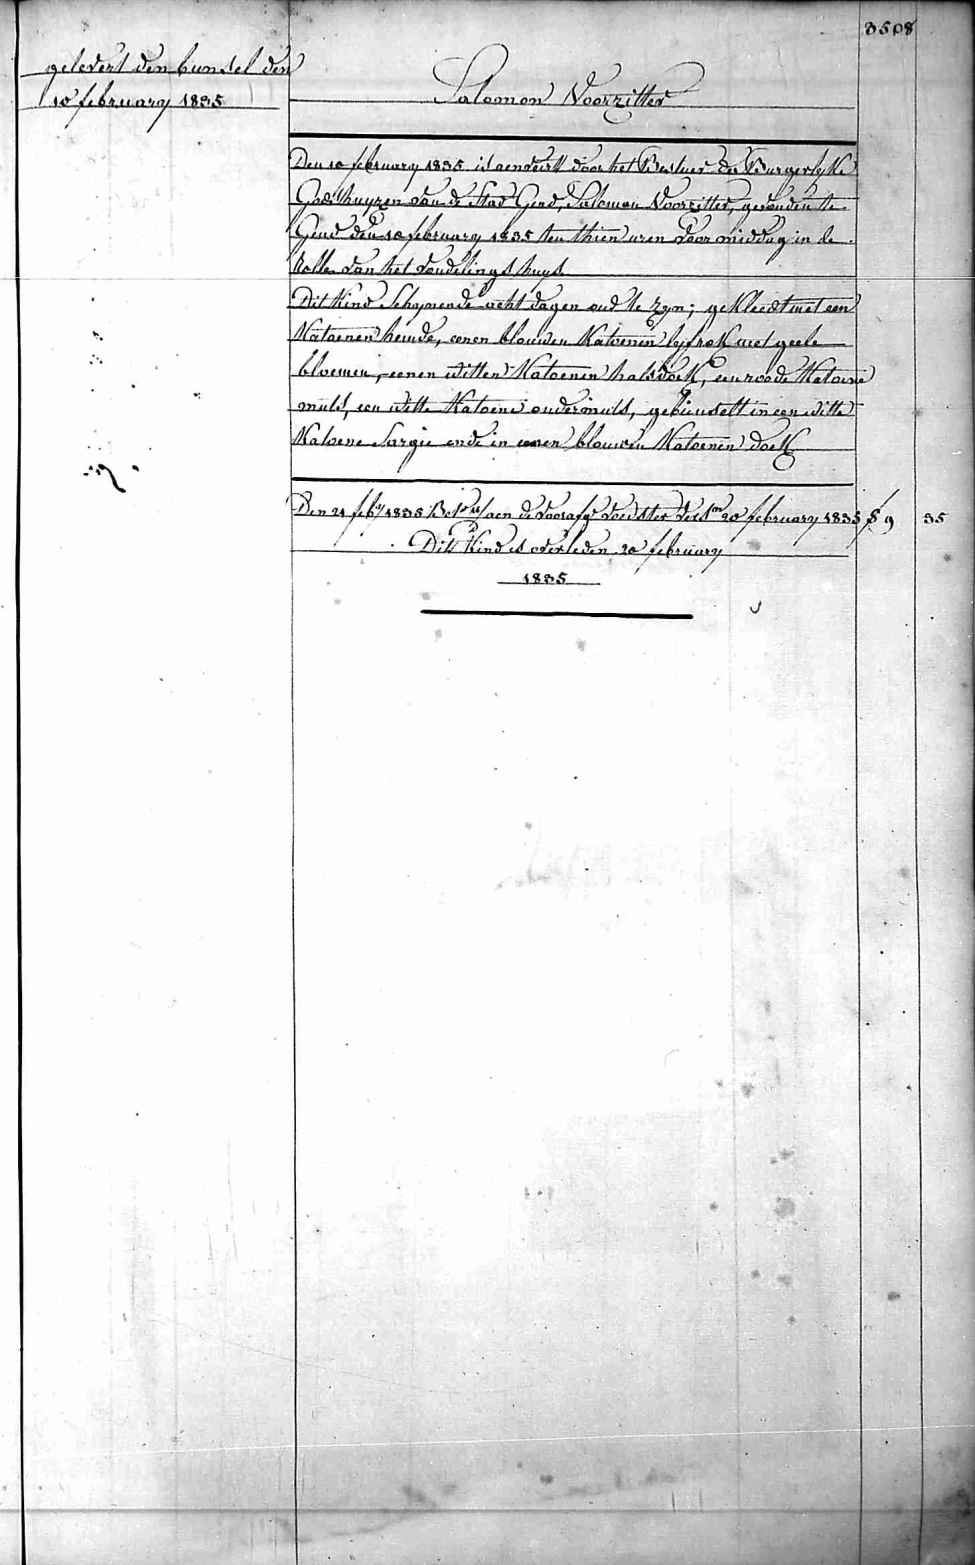 3508
gelevert den bunsel den
10 february 1835
Salomon Voorzitter
Den 10 february 1835 is aenveirt door het Bestuer der Burgerlyke
Godshuyzen van de Stad Gend, Salomon Voorzitter, gevonden te
Gend den 10 february 1835 ten thien uren voor middag in de
Rolle van het vondelings huys
Dit Kind Schynende acht dagen oud te zyn; gekleedt met een
Katoenen hemde, eenen blouwen Katoenen lyfrok met geele
bloemen, eenen witten Katoenen halsdoek, een roode Katoene
muts, een witte Katoene ondermuts, gebunselt in een witte
Katoene Sargie ende in eenen blouwen Katoenen doek
Den 21 feby 1835 aen de voorafge voedster 20 february 1835 9 35
Dit Kind is overleden 20 february
1835